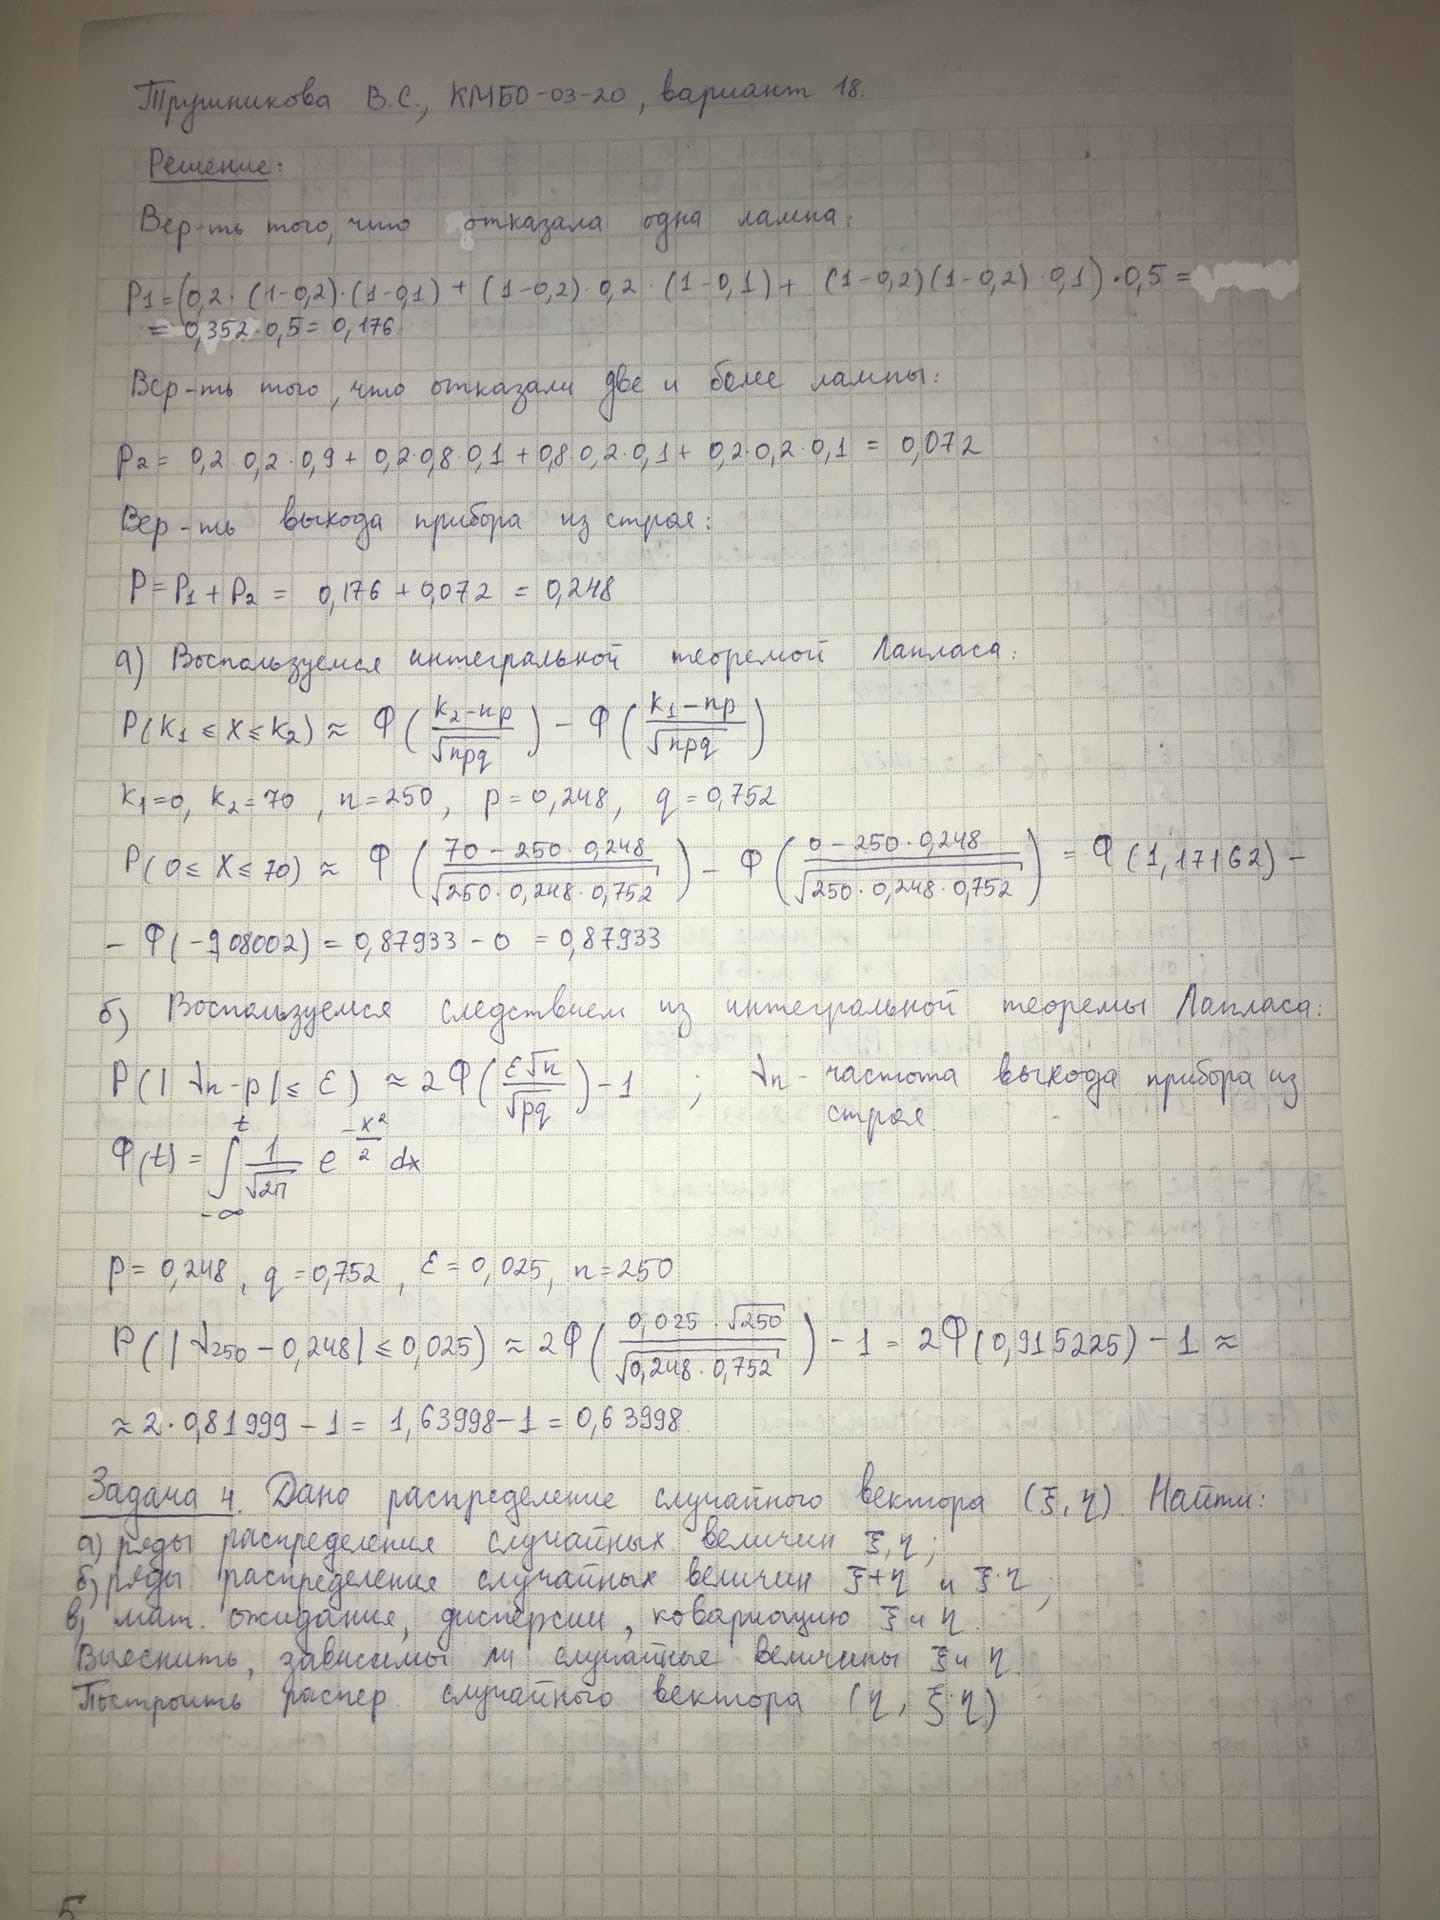 Трушникова В.С., КМБО-03-20, вариант 18.
Решение:
Вер-ть того, что отказала одна лампа:
P1=(0,2·(1-0,2)·(1-0,1)+(1-0,2)·0,2·(1-0,1)+(1-0,2)(1-0,2)·0,1)·0,5=
= 0,352·0,5= 0,176
Вер-ть того, что отказали две и более лампы:
P2= 0,2·0,2·0,9+0,2·0,8·0,1+0,8·0,2·0,1+0,2·0,2·0,1 = 0,072
Вер-ть выхода прибора из строя:
P=P1+P2 = 0,176+0,072 = 0,248
а) Воспользуемся интегральной теоремой Лапласа:
P(k₁ ≤ X ≤ k₂) ≈ Φ((k₂-np)/√npq) - Φ((k₁-np)/√npq)
k₁=0, k₂=70, n=250, p=0,248, q=0,752
P(0 ≤ X ≤ 70) ≈ Φ((70-250·0,248)/√(250·0,248·0,752)) - Φ((0-250·0,248)/√(250·0,248·0,752)) = Φ(1,17162) -
- Φ(-9,08002) = 0,87933 - 0 = 0,87933
б) Воспользуемся следствием из интегральной теоремы Лапласа:
P(|λn-p| ≤ ε) ≈ 2Φ(ε√n/√pq)-1 ; λn - частота выхода прибора из
строя
Φ(t) = ∫_{-∞}^{t} 1/√2π e^{-x²/2} dx
p= 0,248, q=0,752, ε=0,025, n=250
P(|λ250-0,248| ≤ 0,025) ≈ 2Φ((0,025·√250)/√(0,248·0,752)) - 1 = 2Φ(0,915225) - 1 ≈
≈ 2·0,81999-1 = 1,63998-1 = 0,63998.
Задача 4. Дано распределение случайного вектора (ξ, η). Найти:
а) ряды распределения случайных величин ξ, η;
б) ряды распределения случайных величин ξ+η и ξ·η;
в) мат. ожидания, дисперсии, ковариацию ξ и η.
Выяснить, зависимы ли случайные величины ξ и η.
Построить распер. случайного вектора (η, ξ·η)
5